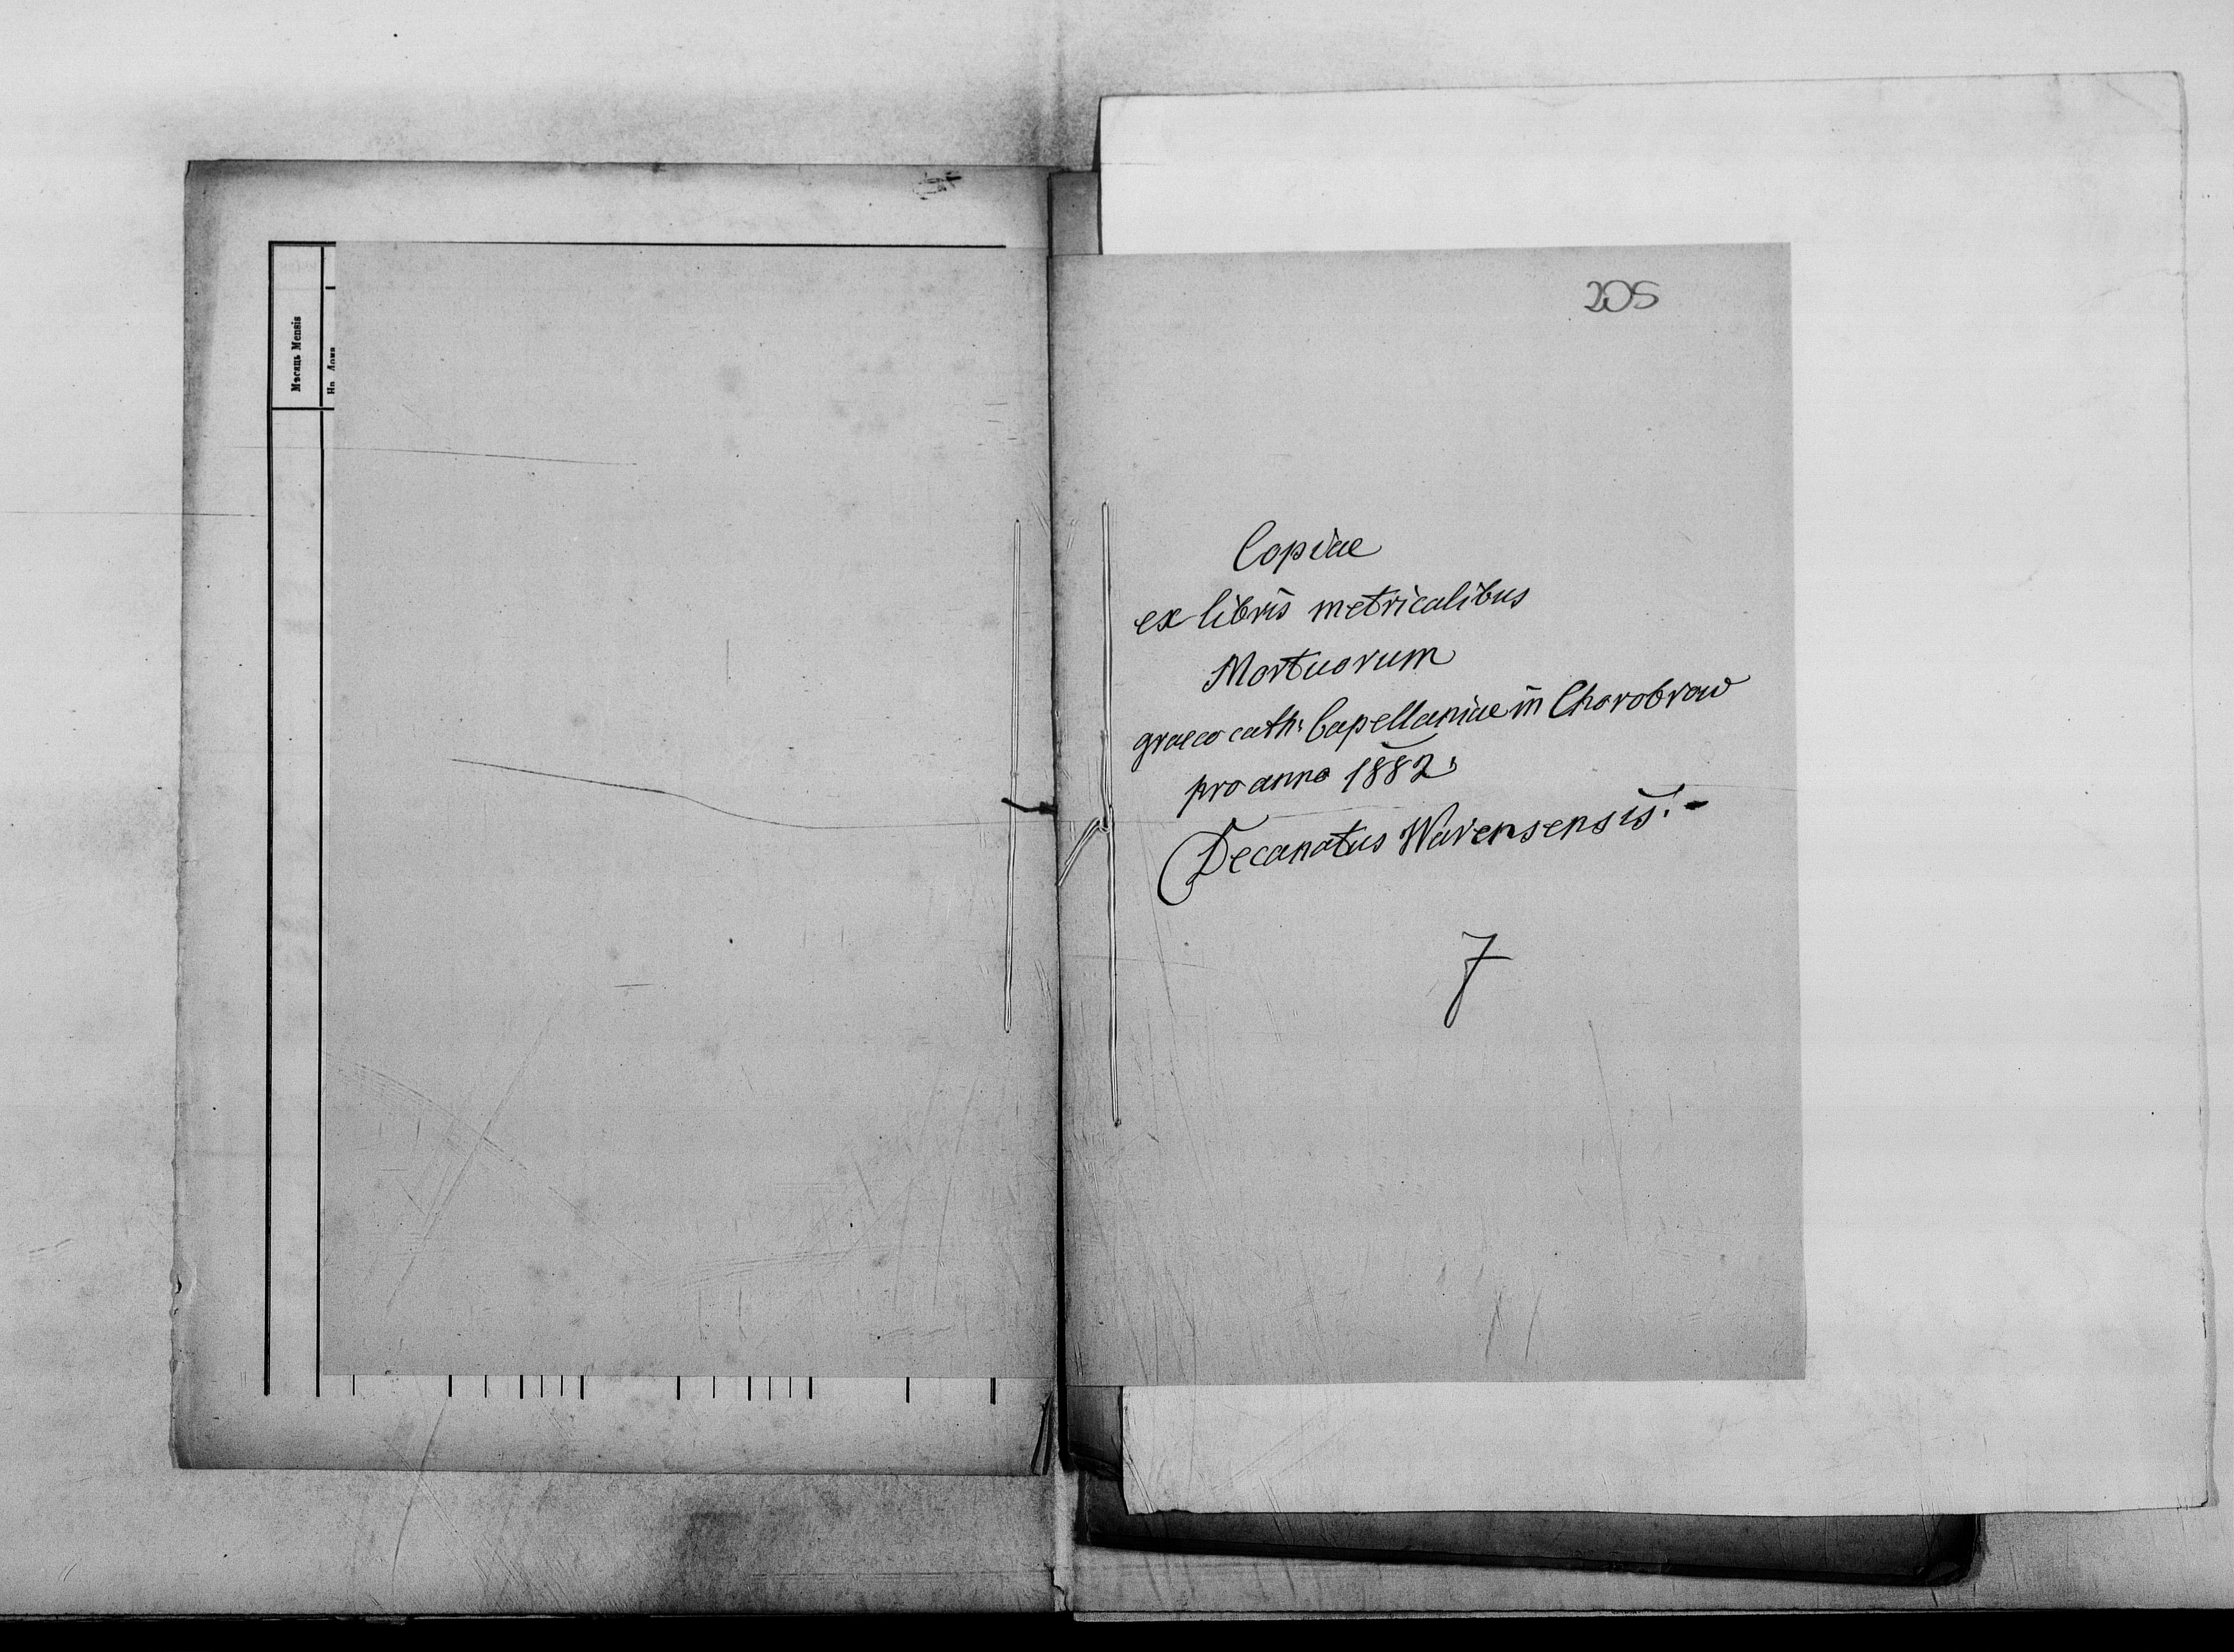 Мѣсяць Mensis
Нр. Дома
205
Copiae
ex libris metricalibus
Mortuorum
graeco cath: Capellaniae in Chorobrow
pro anno 1882
Decanatus Warensensis.-
7